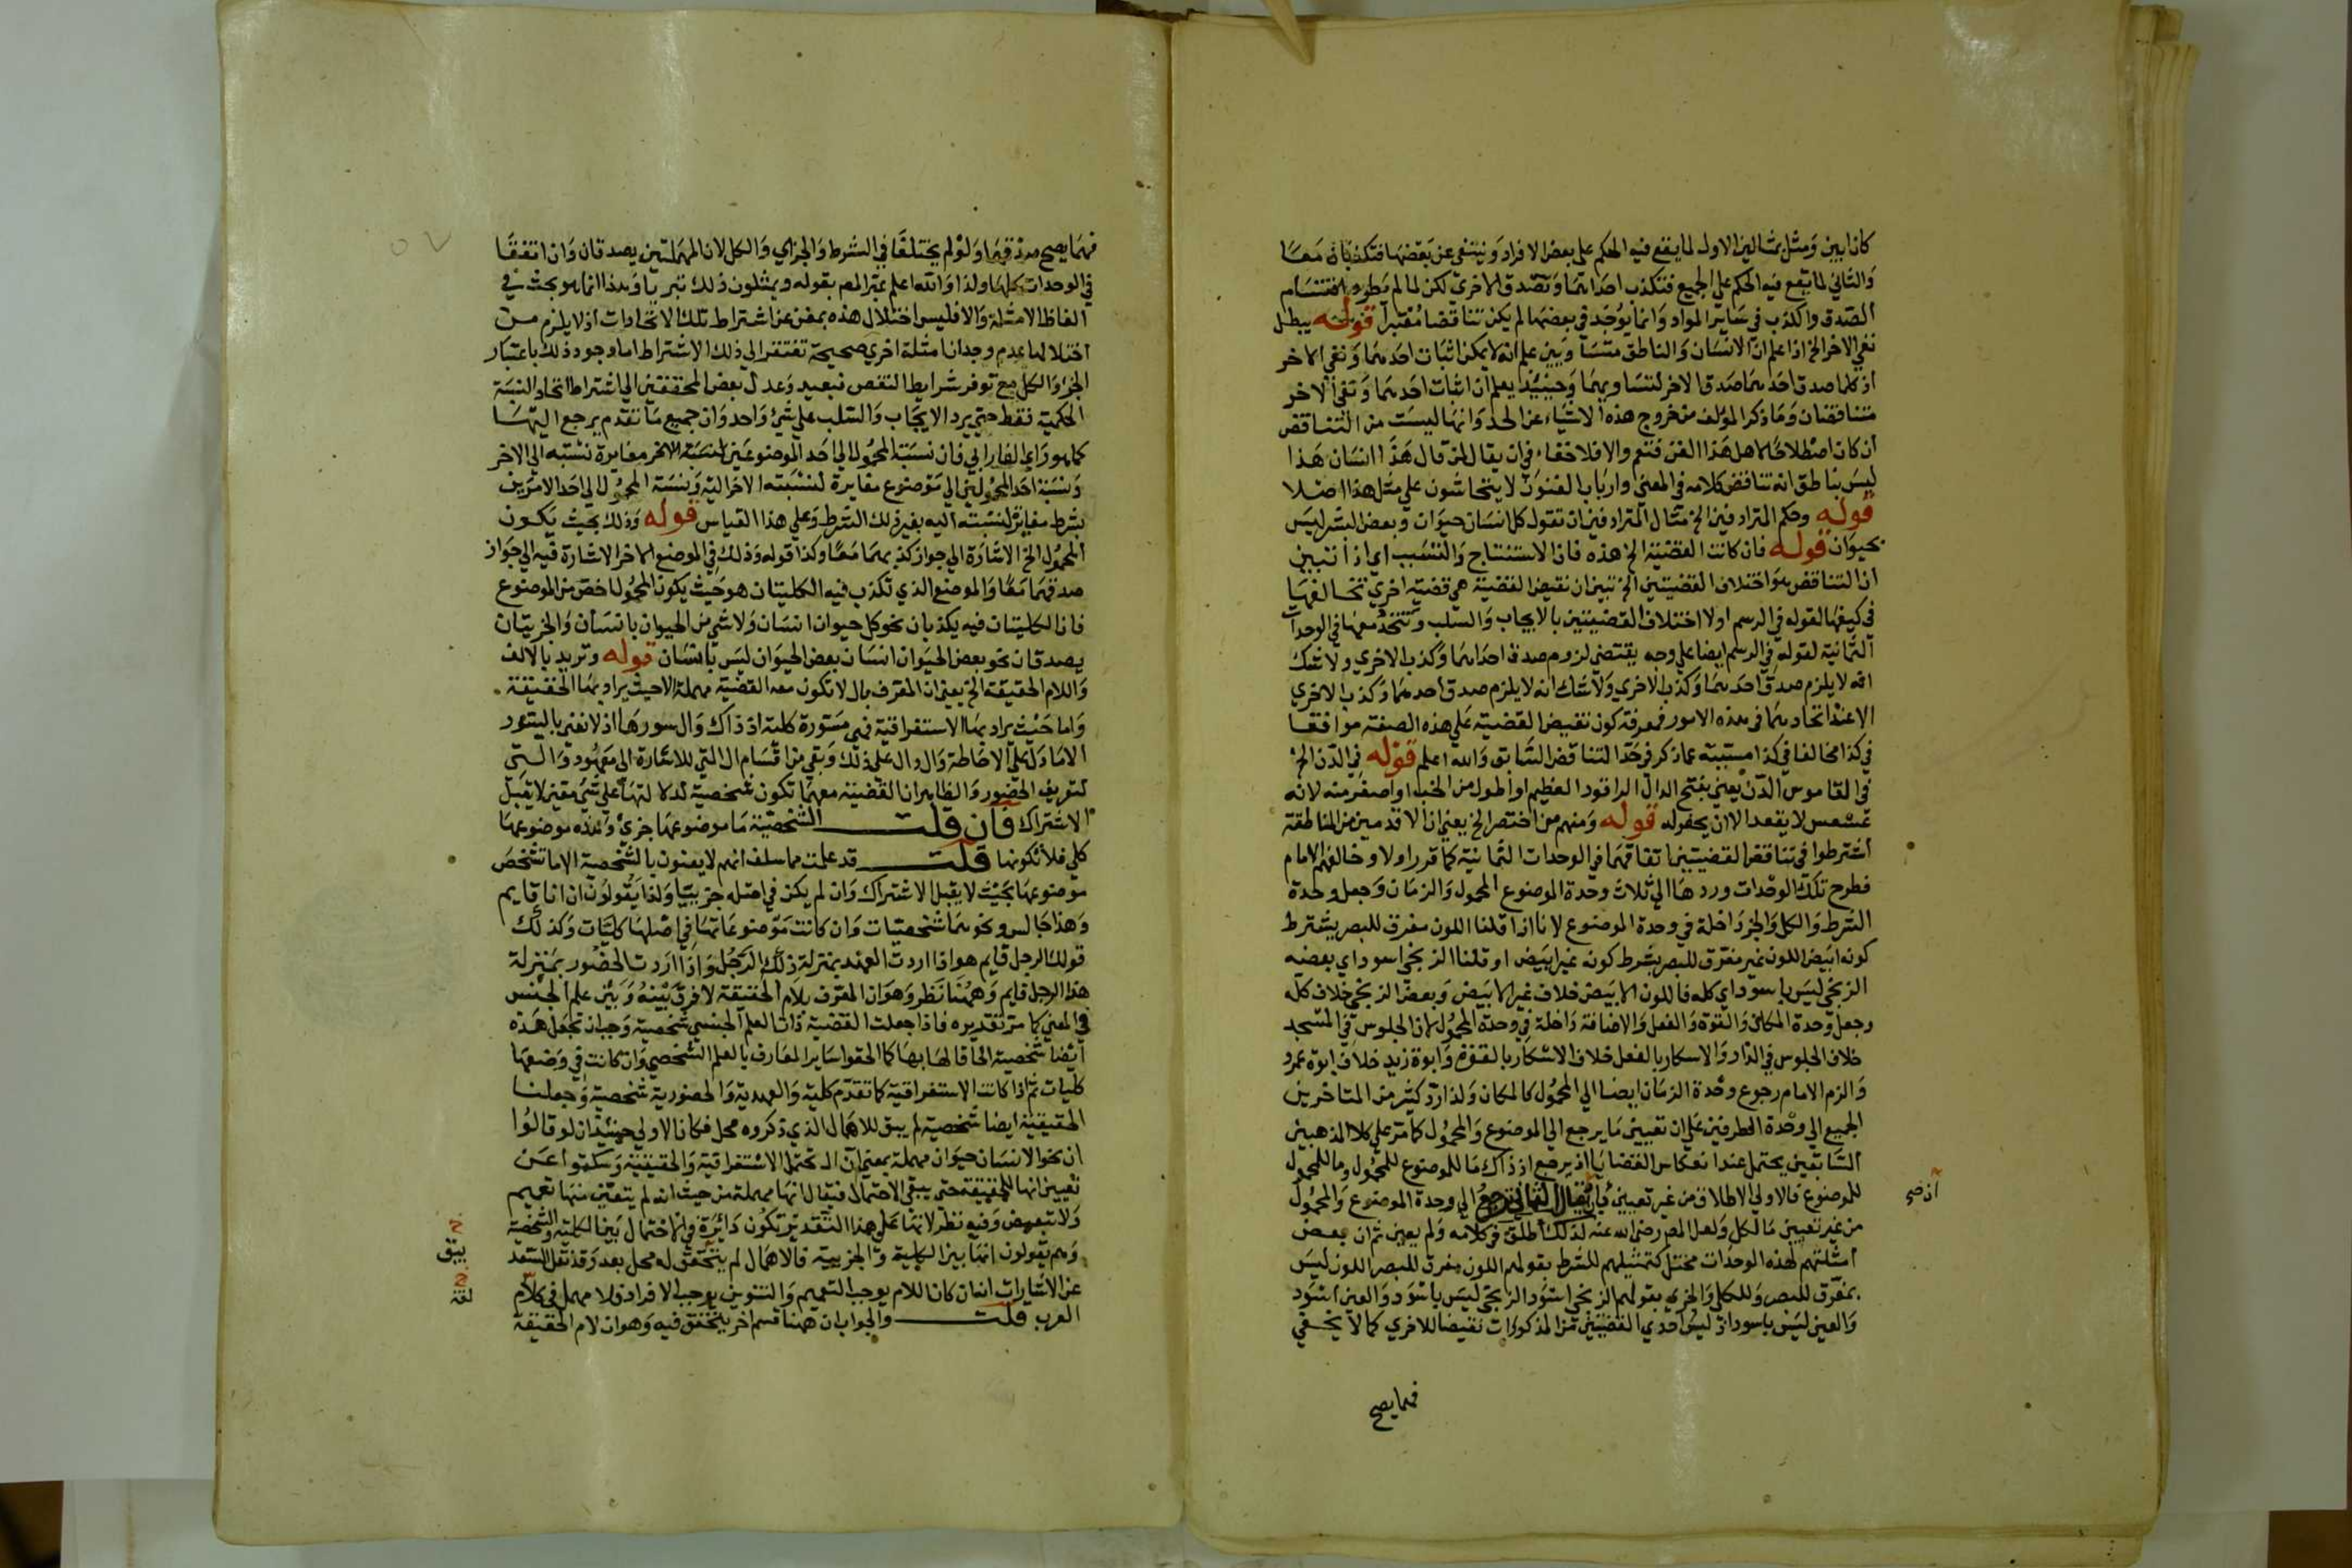 كانا بين ومثل بمثالين الاول لما يقع فيه الحكم على بعض الافراد وينتفي عن بعضها فتكذبان معا
والثاني لما يقع فيه الحكم على الجميع فتكذب احداهما وتصدق الاخرى لكن لما لم يطرد اقتسام
الصدق والكذب في سائر المواد وانما يوجد في بعضها لم يكن تناقضا معتبرا قوله يبطل
نفي الاخر الخ اذا علم ان الانسان والناطق متسا وبين علم انه لا يمكن اثبات احدهما ونفي الاخر
اذ كلما صدق احدهما صدق الاخر لتساويهما وحينئذ يعلم ان اثبات احدهما ونفي الاخر
متناقضان وما ذكر المؤلف من خروج هذه الاشياء عن الحد وانها ليست من التناقض
ان كان اصطلاحا لاهل هذا الفن فنعم والا فلا خفاء في ان يقال لمن قال هذا انسان هذا
ليس بناطق انه تناقض كلامه في المعنى وارباب الفنون لا يتحاشون على مثل هذا اصلا
قوله وحكم المترادفين الخ مثال المترادفين ان تقول كل انسان حيوان وبعض البشر ليس
بحيوان قوله فان كانت القضية الخ هذه فاذا الاستنتاج والتسبب اي اذا تبين
ان التناقض هو اختلاف القضيتين الخ تبين ان نقيض القضية هي قضية اخرى تخالفها
في كيفها لقوله في الرسم اولا اختلاف القضيتين بالايجاب والسلب وتتحد معها في الوحدات
الثمانية لقوله في الرسم ايضا على وجه يقتضي لزوم صدق احداهما وكذب الاخرى ولا شك
انه لا يلزم صدق احدهما وكذب الاخرى ولا شك انه لا يلزم صدق احدهما وكذب الاخرى
الا عند اتحادهما في هذه الامور فمعرفة كون نقيض القضية على هذه الصفة موافقا
في كذا مخالفا في كذا مسببة عما ذكر في حد التناقض السابق والله اعلم قوله في الدن الخ
في القاموس الدن يعني بفتح الدال الراقود العظيم او اطول من الحب او اصغر منه لانه
عسعس لا يقعد الا ان يحفر له قوله ومنهم من اختصر الخ يعني ان الاقدمين من المناطقة
اشترطوا في تناقض القضيتين اتفاقهما في الوحدات الثمانية كما قرر اولا وخالفهم الامام
فطرح تلك الوحدات وردها الى ثلاث وحدة الموضوع المحمول والزمان وجعل وحدة
الشرط والكل والجزء داخلة في وحدة الموضوع لانا اذا قلنا اللون مفرق للبصر يشترط
كونه ابيض اللون غير مفرق للبصر بشرط كونه غير ابيض او قلنا الزنجي اسود اي بعضه
الزنجي ليس باسود اي كله فاللون الابيض خلاف غير الابيض وبعض الزنجي خلاف كله
وجعل وحدة المكان والقوة والفعل والاضافة داخلة في وحدة المحمول لان الجلوس في المسجد
خلاف الجلوس في الدار والاسكار بالفعل خلاف الاسكار بالقوة وابوة زيد خلاف ابوة عمرو
والزم الامام رجوع وحدة الزمان ايضا الى المحمول كالمكان ولذا رد كثير من المتاخرين
الجميع الى وحدة الطرفين على ان تعيين ما يرجع الى الموضوع والمحمول كما مر على كلا المذهبين
السابقين يحتمل عند انعكاس القضايا اذ يرجع اذ ذاك ما للموضوع للمحمول وما للمحمول
للموضوع فالاولى الاطلاق من غير تعيين بان يقال الثماني ترجع الى وحدة الموضوع والمحمول
من غير تعيين مالكل ولعل المص رضي الله عنه لذلك اطلق في كلامه ولم يعين ثم ان بعض
امثلتهم لهذه الوحدات مختل كتمثيلهم للشرط بقولهم اللون مفرق للبصر اللون ليس
بمفرق للبصر وللكل والجزء بقولهم الزنجي اسود الزنجي ليس باسود والعين اسود
والعين ليس باسود اذ ليس احدى القضيتين من المذكورات نقيضا للاخرى كما لا يخفي
فهما يصح
اذ صح
فهما يصح صدقهما ولو لم يختلفا في الشرط والجزء والكل لان المهملتين يصدقان وان اتفقا
في الوحدات كلها ولذا والله اعلم عبر المص بقوله ويمثلون ذلك تبريا وهذا انما هو بحث في
الفاظ الامثلة والا فليس اختلال هذه بمغن عن اشتراط تلك الاتحادات اذ لا يلزم من
اختلالها عدم وجدان امثلة اخرى صحيحة تفتقر الى ذلك الاشتراط اما وجود ذلك باعتبار
الجزء والكل مع توفر شرايط النقض فبعيد وعدل بعض المحققين الى اشتراط اتحاد النسبة
الحكمية فقط حتى يرد الايجاب والسلب على شيء واحد وان جميع ما تقدم يرجع اليها
كما هو راي الفارابي فان نسبة المحمول الى احد الموضوعين لنسبة الاخر مغايرة نسبته الى الاخر
ونسبة احد المحمولين الى موضوع مغايرة لنسبته الاخر اليه ونسبة المحمول الى احد الامرين
بشرط مغاير لنسبته اليه بغير ذلك الشرط وعلى هذا القياس قوله وذلك بحيث يكون
المحمول الخ الاشارة الى جواز كذبهما معا وكذا قوله وذلك في الموضع الاخر الاشارة فيه الى جواز
صدقهما معا والموضع الذي تكذب فيه الكليتان هو حيث يكون المحمول اخص من الموضوع
فاذا الكليتان فيه يكذبان نحو كل حيوان انسان ولا شيء من الحيوان بانسان والجزئيتان
يصدقان نحو بعض الحيوان انسان بعض الحيوان ليس بانسان قوله وتريد بالالف
واللام الحقيقة الخ يعني ان المعرف بال لا تكون معه القضية مهملة الا حيث يراد بها الحقيقة
واما حيث يراد بها الاستغراقية فهي مسورة كلية اذ ذاك وال سورها اذ لا نعني بالسور
الا ما دل على الاحاطة وال دال على ذلك وبقي من اقسام ال التي للاشارة الى معهود والتي
لتعريف الحضور والظاهر ان القضية معهما تكون شخصية لدلالتها على شيء معين لا يقبل
الاشتراك فان قلت الشخصية ما موضوعها جزئي وهذه موضوعها
كلي فلا تكونها قلت قد علمت مما سلف انهم لا يعنون بالشخصية الا ما تشخص
موضوعها بحيث لا يقبل الاشتراك وان لم يكن في اصله جزئيا ولذا يقولون ان انا قايم
وهذا جالس ونحوهما شخصيات وان كانت موضوعاتها في اصلها كليات وكذلك
قولك الرجل قايم هو اذا اردت العهد بمنزلة ذلك الرجل واذا اردت الحضور بمنزلة
هذا الرجل قايم وههنا نظر وهو ان المعرف بلام الحقيقة لا فرق بينه وبين علم الجنس
في المعنى كما مر تقديره فاذا جعلت القضية ذات العلم الجنسي شخصية وجب ان تجعل هذه
ايضا شخصية الحاقا لها بها كما الحقوا سائر المعارف بالعلم الشخصي وان كانت في وضعها
كليات ثم اذا كانت الاستغراقية كما تقدم كلية والعهدية والحضورية شخصية وجعلنا
الحقيقية ايضا شخصية لم يبق للاهمال الذي ذكروه محل فكان الاولى حينئذ ان لو قالوا
ان نحو الانسان حيوان مهملة بمعنى ان ال تحتمل الاستغراقية والحقيقية وسكتوا عن
تعيين انها للحقيقة حتى يبقى الاحتمال فيقال انها مهملة من حيث انه لم يتعين منها تعميم
ولا تبعيض وفيه نظر لانها على هذا التقدير تكون دائرة في الاحتمال بين الكلية والشخصية
وهم يقولون انها بين الكلية والجزئية فالاهمال لم يتحقق له محل بعد وقد نقل السعد
عن الاشارات انه ان كان اللام يوجب التعميم والتنوين يوجب الافراد فلا مهمل في كلام
العرب قلت والجواب ان ههنا قسم اخر يتحقق فيه وهو ان لام الحقيقة
خ
يبق
خ
لغة